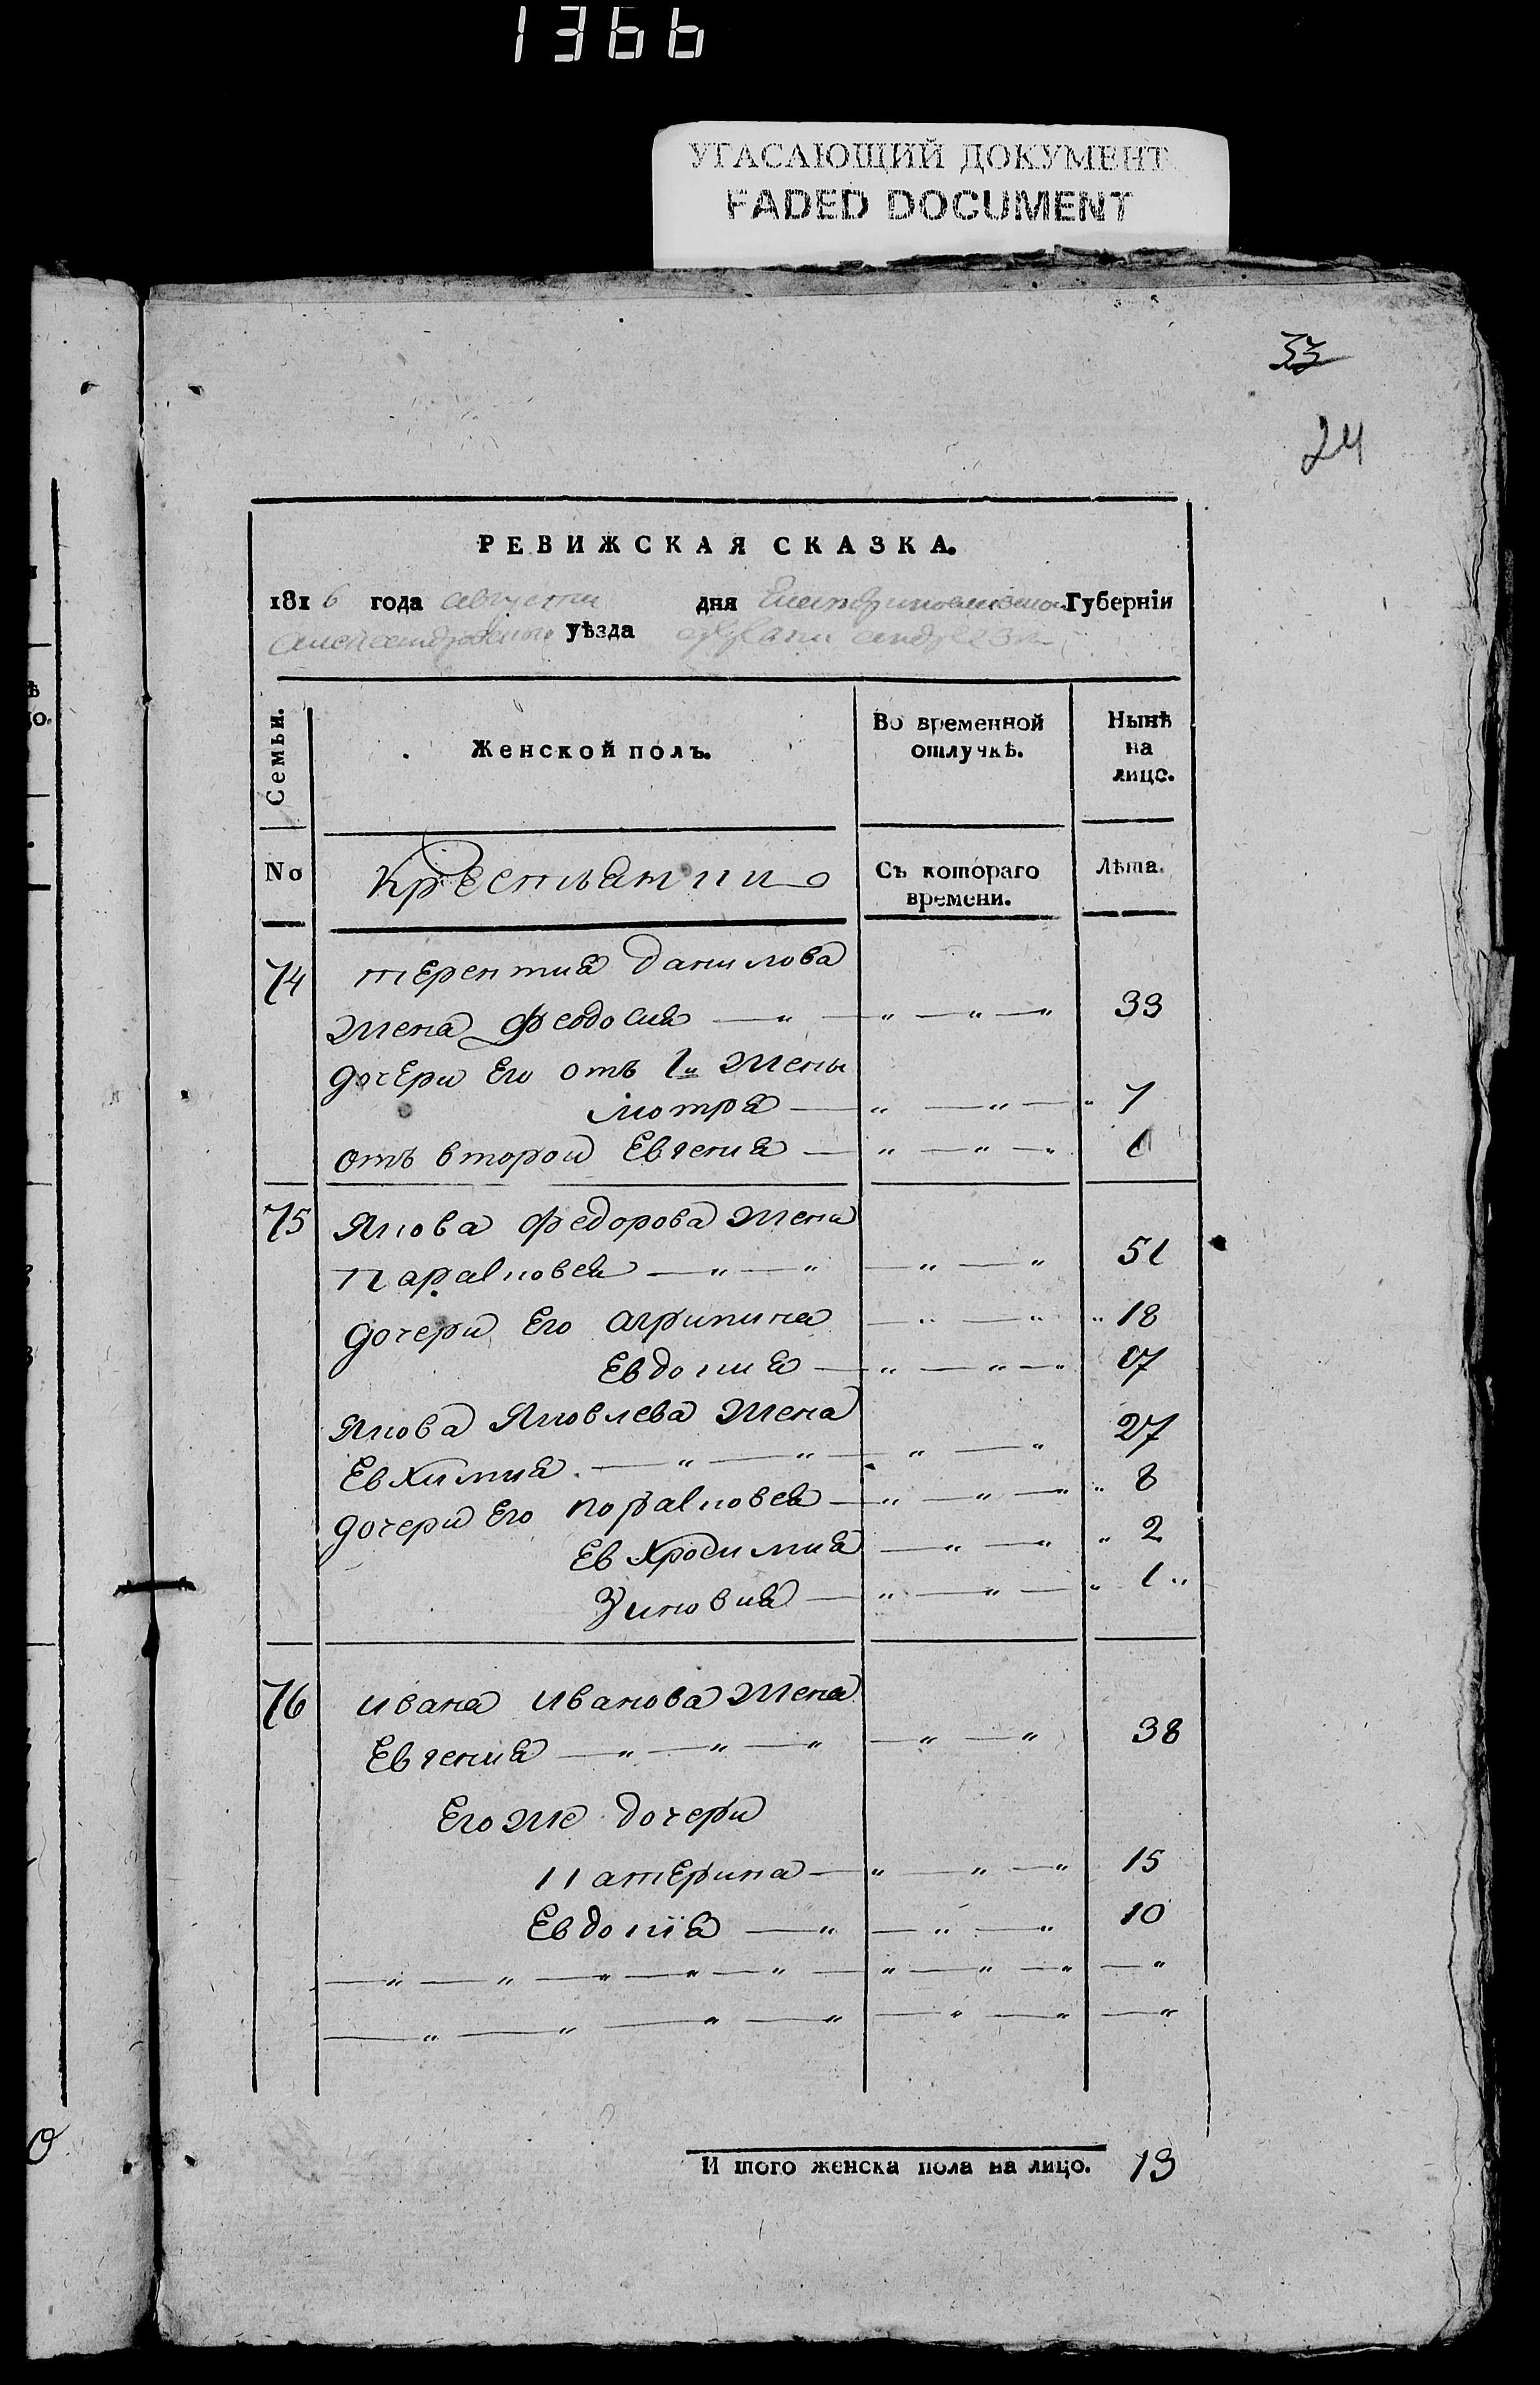 1366
УГАСАЮЩИЙ ДОКУМЕНТ
FADED DOCUMENT
33
24
РЕВИЖСКАЯ СКАЗКА.
1816 года августа дня Екатеринославской Губерніи
Александровского уѣзда
Семьи. Женской полъ. Во временной отлучкѣ. Нынѣ на лицо.
No Крестьянки Съ котораго времени. Лѣта.
74 терентия данилова
жена феодосия 33
дочери Его отъ 1й жены
мотря 7
отъ второй Евгения 1
75 Якова федорова жена
параsковея 51
дочери Его агрипина 18
Евдокия 17
Якова Яковлева жена 27
Евхимия
дочери Его параsковея 8
Евхросимия 2
Зиновия 1
76 ивана иванова жена
Евгения 38
Егоже дочери
катерина 15
Евдокїя 10
И того женска пола на лицо. 13